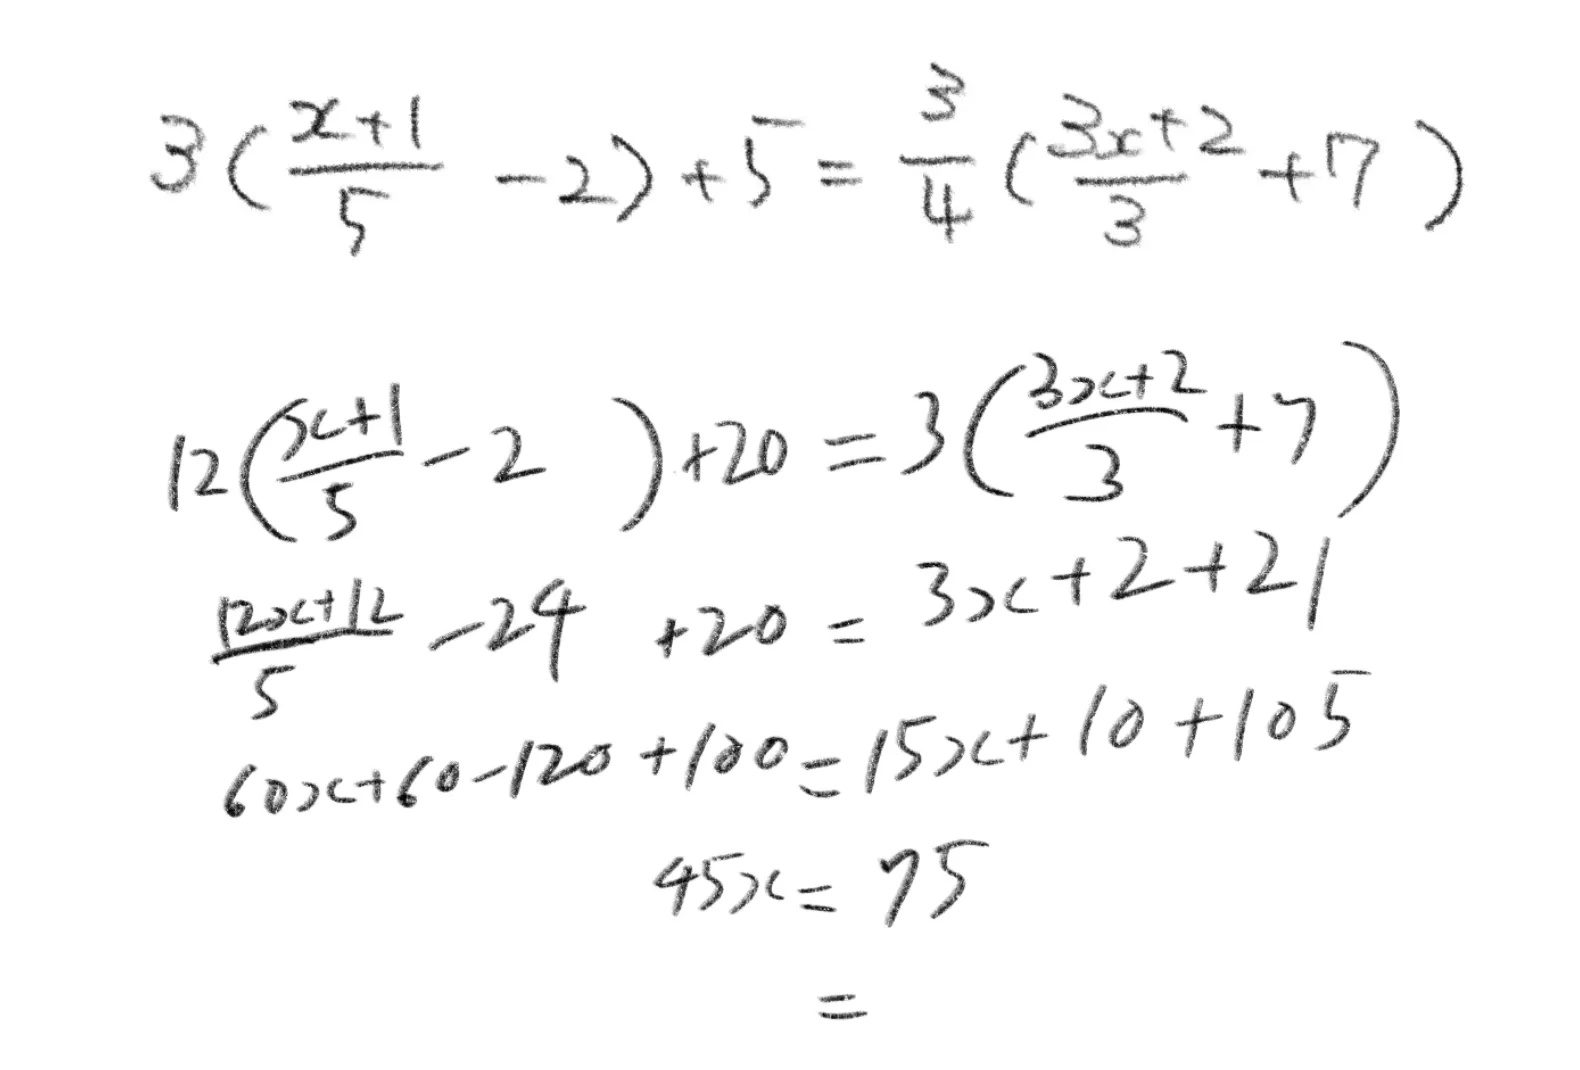 3(\frac{x+1}{5} - 2) + 5 = \frac{3}{4}(\frac{3x+2}{3} + 7)
12(\frac{x+1}{5} - 2) + 20 = 3(\frac{3x+2}{3} + 7)
\frac{12x+12}{5} - 24 + 20 = 3x + 2 + 21
60x + 60 - 120 + 100 = 15x + 10 + 105
45x = 75
=